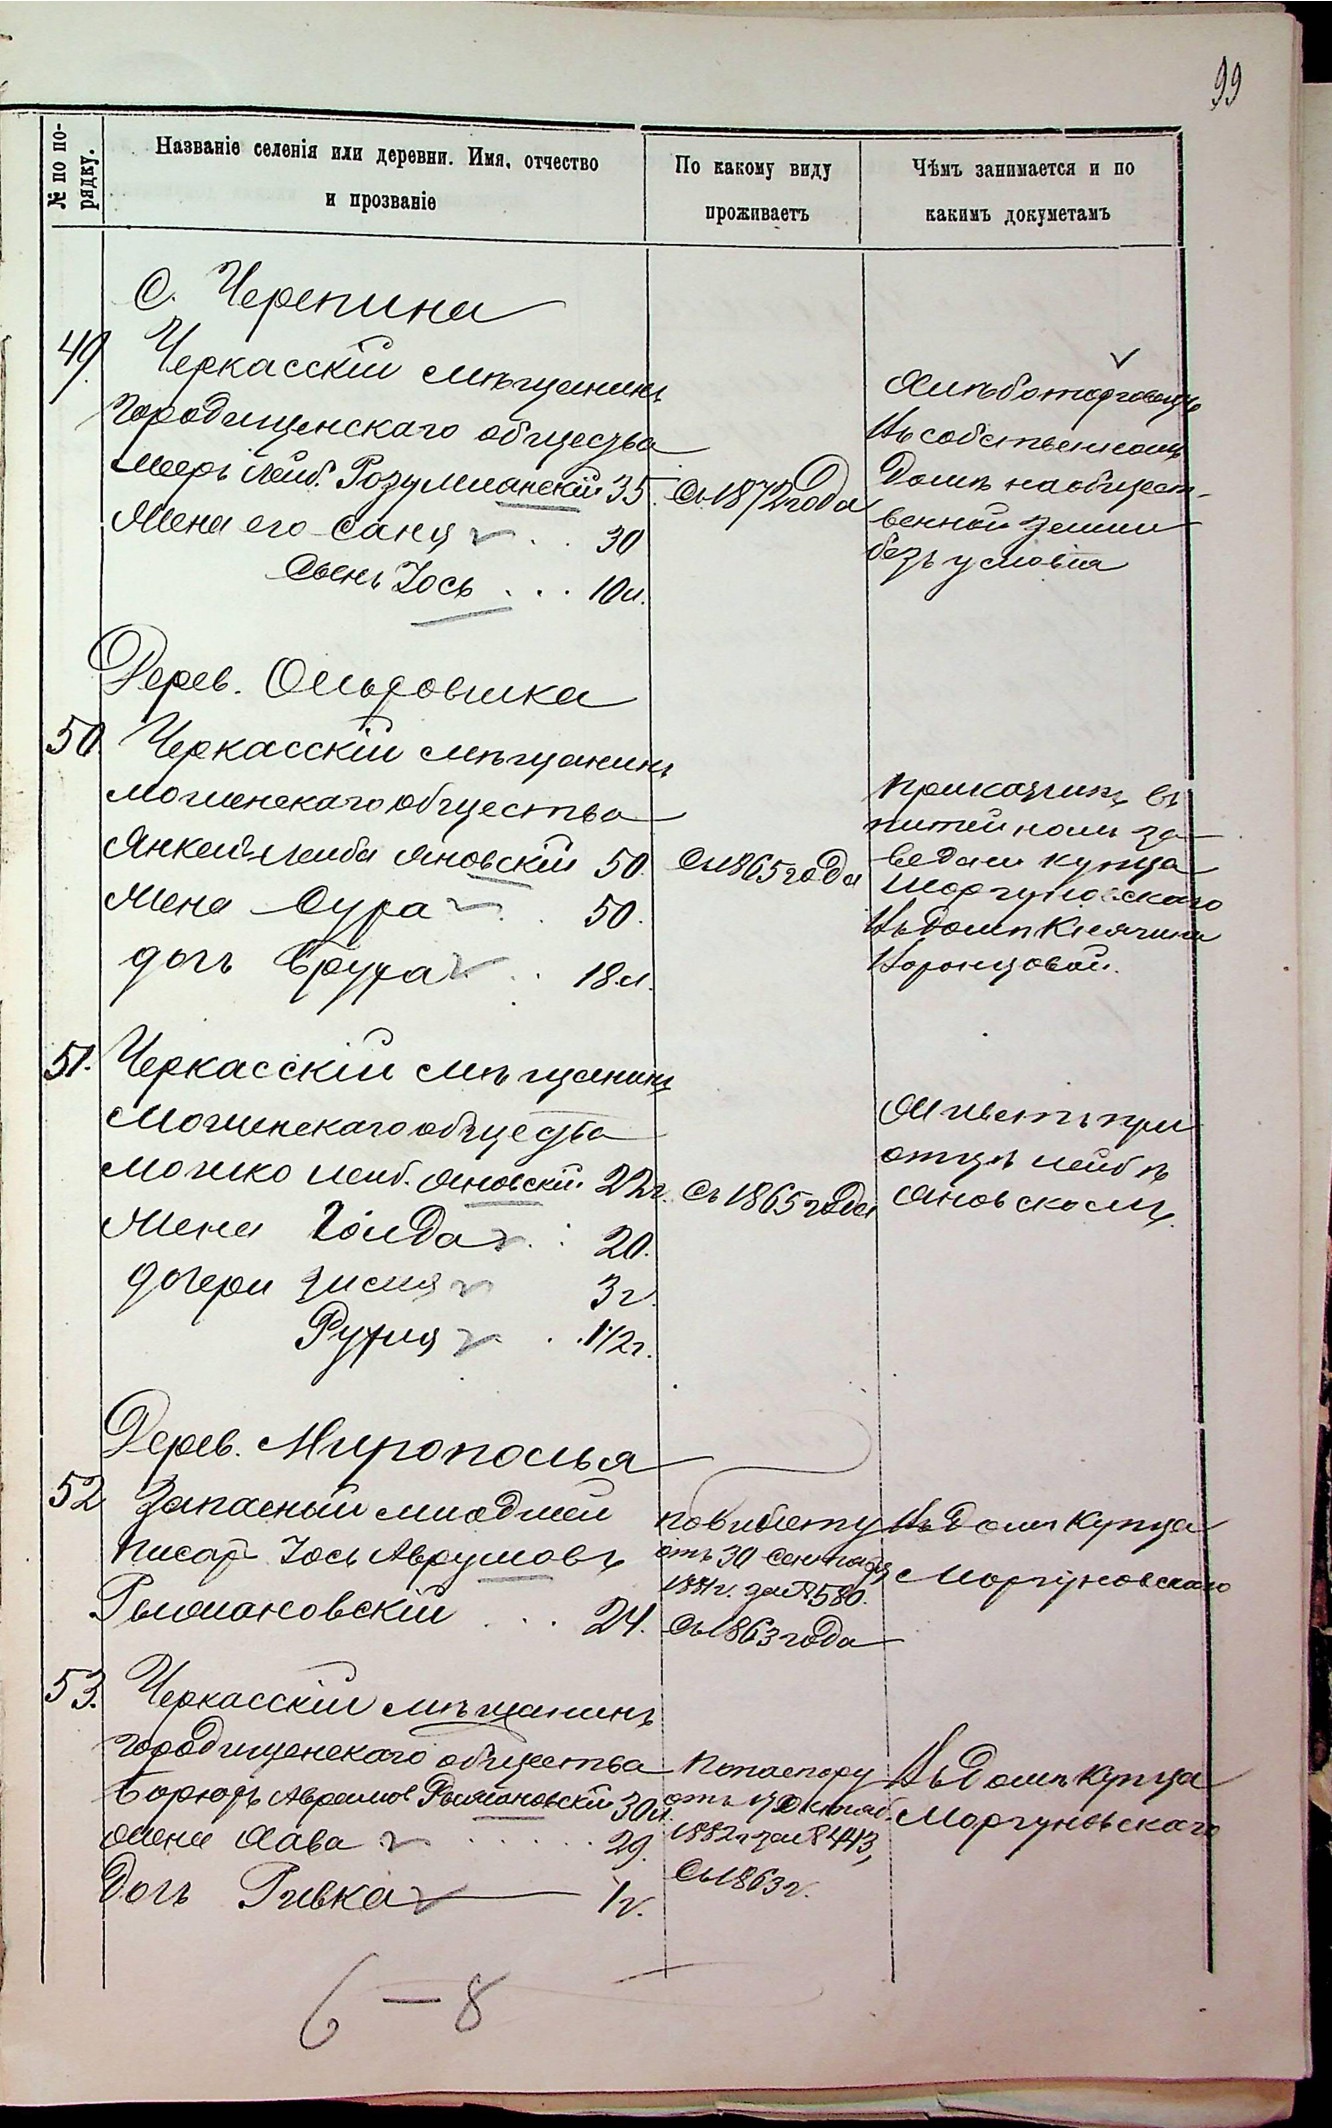 99
№ по по-
рядку.
Названіе селенія или деревни. Имя, отчество
и прозваніе
По какому виду
проживаетъ
Чѣмъ занимается и по
какимъ докуметамъ
С. Черепина
49. Черкасскій мѣщанинъ
Городищенскаго общества
Мееръ Лейб. Розумианскій 35.
Жена его Саня 30
Сынъ Іось . . . 10 л.
Съ 1872 года
Хлѣботорговецъ
Въ собственномъ
Домѣ на общест-
венной земли
безъ условія
Дерев.
50. Черкасскій мѣщанинъ
Мошенскаго общества
Янкель Лейба Яновскій 50.
Жена Сура . . 50.
дочь Фрума . . 18 л.
Съ 1865 года
Прикащикъ въ
питейномъ за-
ведени купца
Моргуновскаго
Въ Домѣ Княгини
Воронцовой.
51. Черкасскій мѣщанинъ
Мошенскаго общества
Мошко Лейб. Яновскій 22 г.
Жена Голда . : 20.
дочери Зися 3 г.
. . 1 1/2 г.
Съ 1865 года
Живетъ при
отцѣ Лейбѣ
Яновскомъ.
Дерев. Мирополья
52 Запасный младшей
писарь Іось Аврумовъ
. . . 24.
по билету
отъ 30 Сентября
1881 г. за № 580.
Съ 1863 года
Въ Домѣ Купца
Моргуновскаго
53. Черкасскій мѣщанинъ
Городищенскаго общества
Борюхъ Аврамов 30 л.
Жена Хава . . . . . . 29.
Дочь Ривка 1 г.
По паспорту
отъ 19 Октяб.
1882 г за № 443,
Съ 1863 г.
Въ Домѣ купца
Моргуновскаго
6 — 8